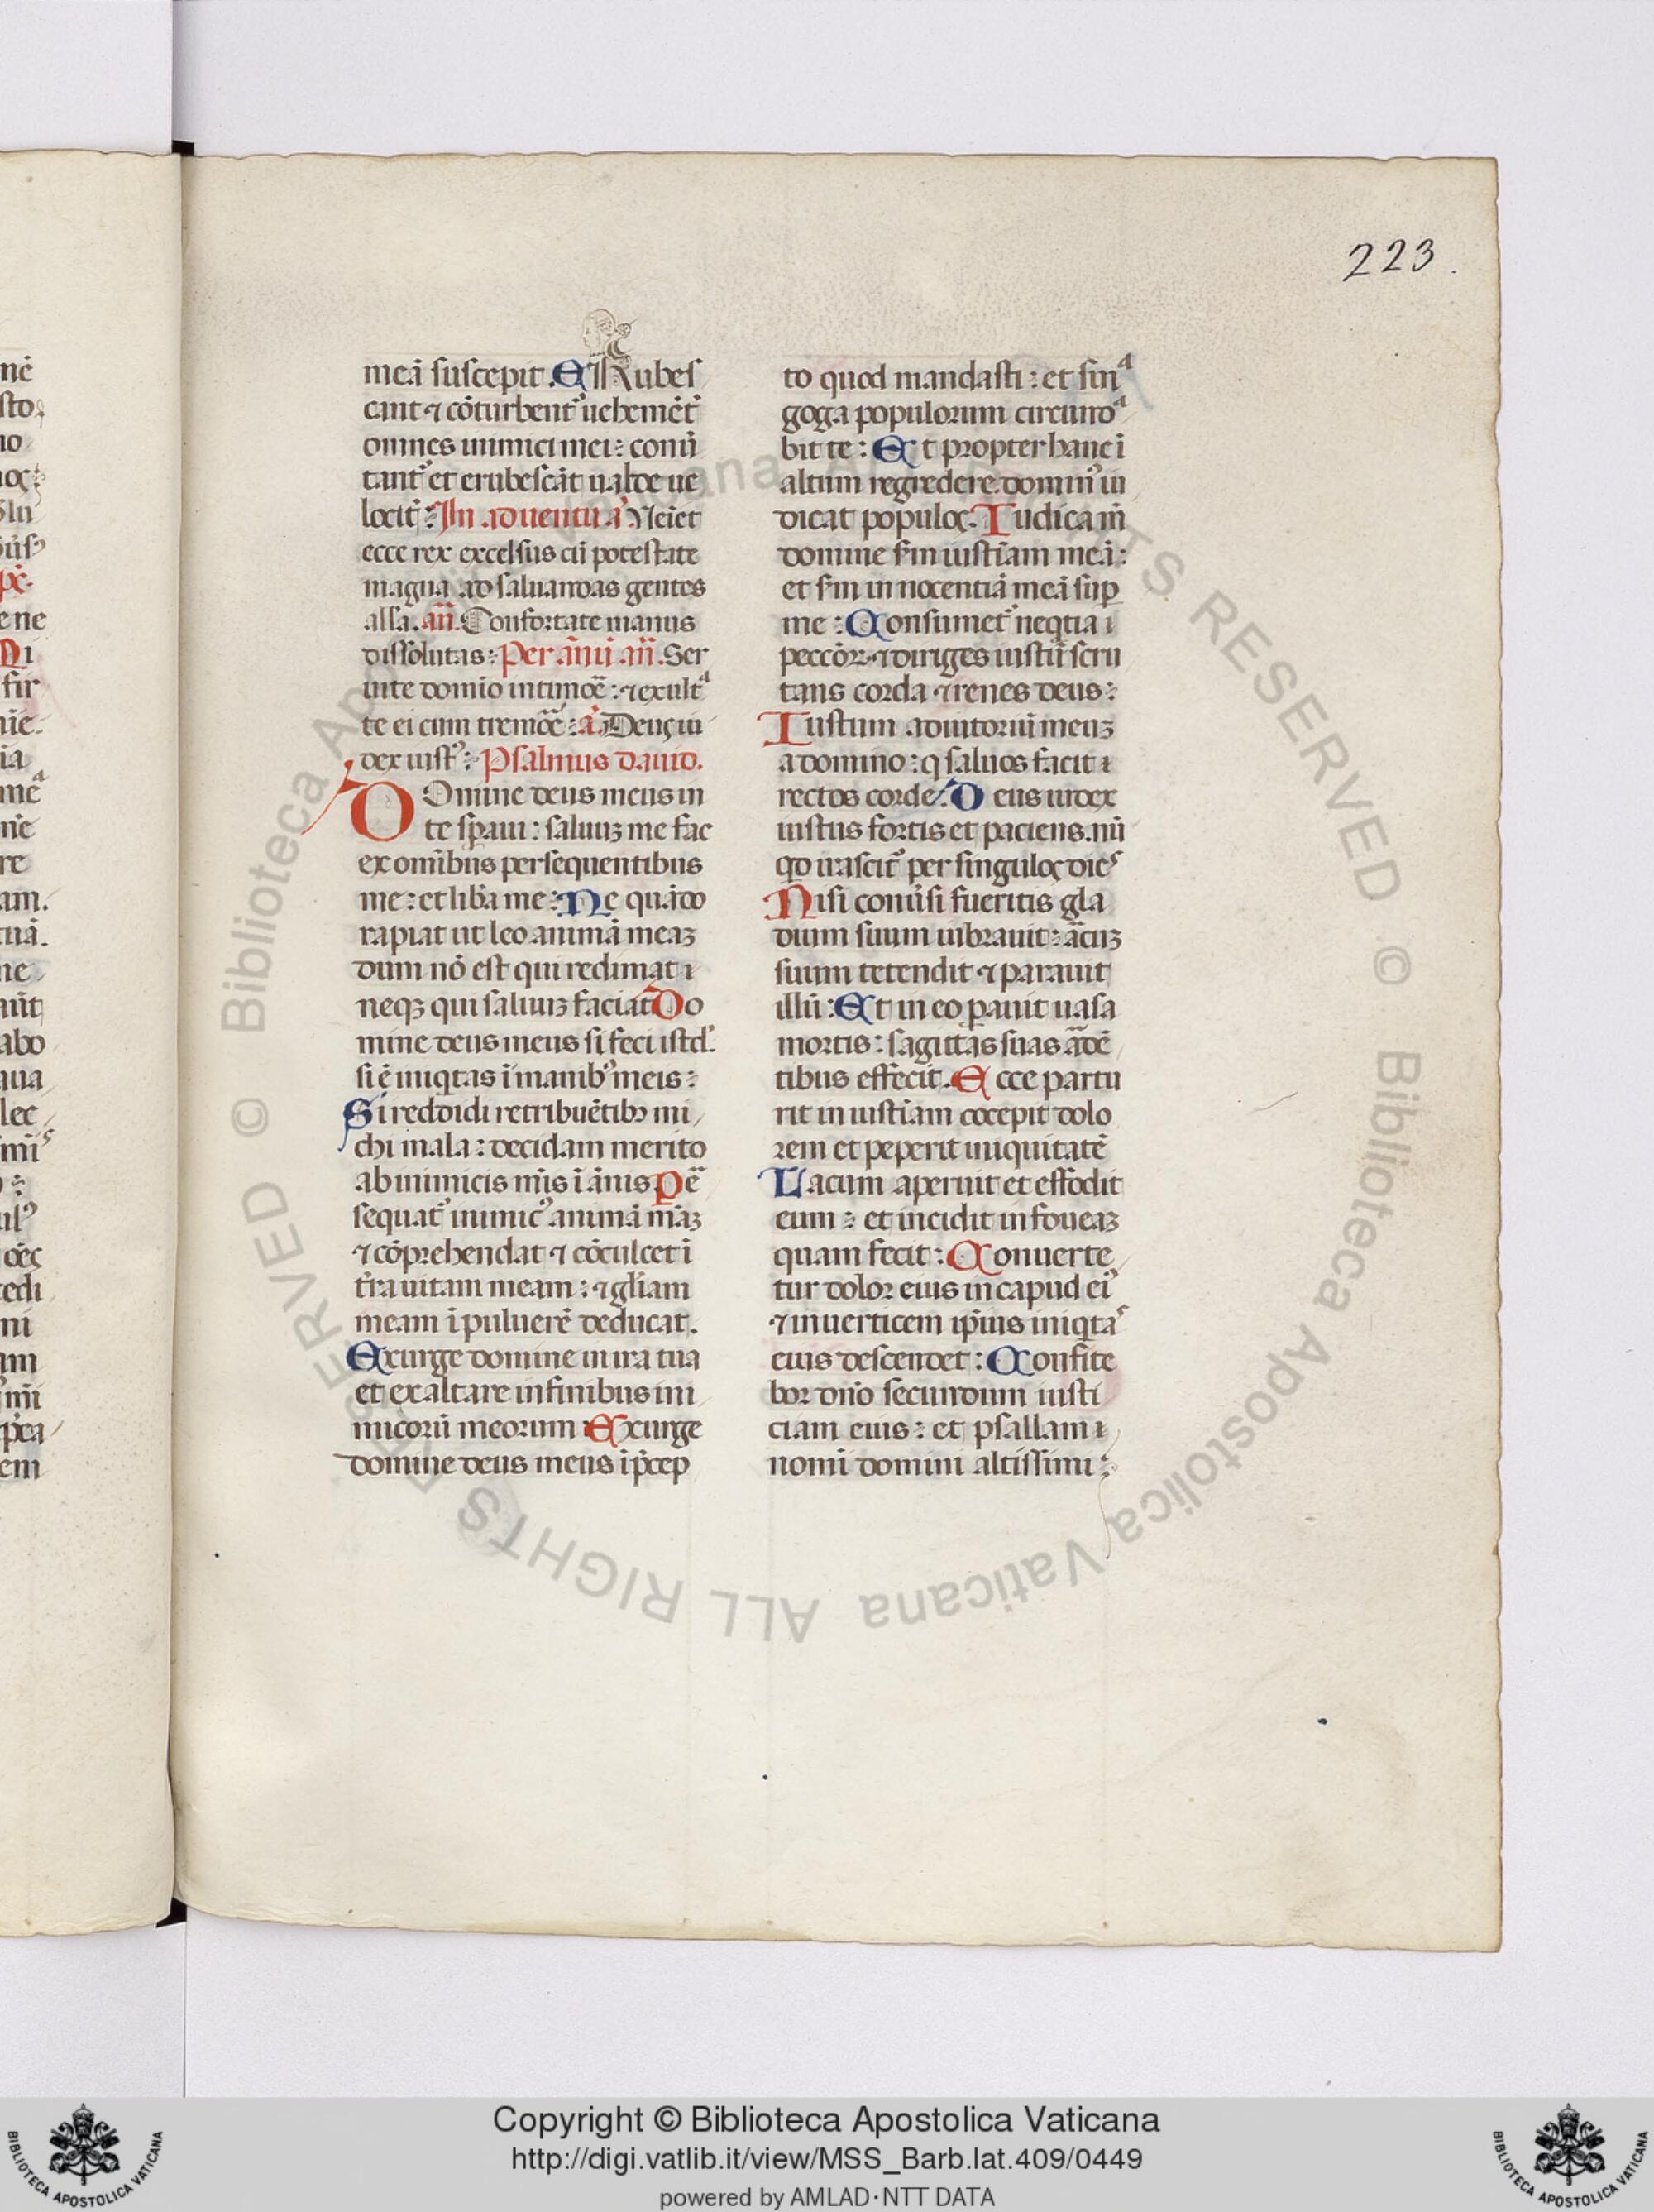 223
meā suscepit. ERubes
cant ⁊ cōturbent᷑ uehemēt᷑
omnes inimici mei: conū
tant᷑ et erubescāt ualde ue
locit᷑: In aduentu. a᷑. Veiet
ecce rex excelsus cū potestate
magna ad saluandas gentes
alla. an̄. Confortate manus
dissolutas: Per ānū. an̄. Ser
uite domīo in timoē: ⁊ exultᵃ
te ei cum tremoē: a᷑. Deus iu
dex iustꝰ: Psalmus dauid.
DOmine deus meus in
te sꝑaui: saluuꝫ me fac
ex omībus persequentibus
me: et liba me: Ne quādo
rapiat ut leo animā meaꝫ
dum nō est qui redimat
neqꝫ qui saluuꝫ faciat Do
mine deus meus si feci istd᷑.
si ē iniqtas ī manibꝰ meis:
Si reddidi retribuētibꝫ mi
chi mala: decidam merito
ab inimicis mis īanis Pē
sequat᷑ inimicꝰ animā māꝫ
⁊ cōprehendat ⁊ cōculcet ī
tra uitam meam: ⁊ gliam
meam ī puluerē deducat.
Exurge domine in ira tua
et exaltare in finibus ini
micorū meorum Exurge
domine deus meus īpcep
to quod mandasti: et sinᵃ
goga populorum circundᵃ
bit te: Et propter hanc ī
altum regredere. dominꝰ iu
dicat populos. Iudica m̄
domine sm iustiam meā:
et sm innocentiā meā suꝑ
me: Consumet᷑ neqtia
peccōꝝ ⁊ diriges iustū scru
tans corda ⁊ renes deus:
Iustum adiutoriū meuꝫ
a domino: q saluos facit
rectos corde: Deus iudex
iustus fortis et paciens. nū
qd irascit᷑ per singulos dies
Nisi conūsi fueritis gla
dium suum uibrauit: ācuꝫ
suum tetendit ⁊ parauit
illū: Et in eo ꝑauit uasa
mortis: sagittas suas adē
tibus effecit. Ecce partu
rit in iustiam cōcepit dolo
rem et peperit iniquitatē
Lacum aperuit et effodit
eum: et incidit in foueaꝫ
quam fecit: Conuerte
tur dolor eius in capud eiꝰ
⁊ in uerticem ipius iniqtaˢ
eius descendet: Confite
bor dno secundum iusti
ciam eius: et psallam
nomī domini altissimi:
Copyright © Biblioteca Apostolica Vaticana
http://digi.vatlib.it/view/MSS_Barb.lat.409/0449
powered by AMLAD·NTT DATA
BIBLIOTECA APOSTOLICA VATICANA
BIBLIOTECA APOSTOLICA VATICANA
© Biblioteca Apostolica Vaticana ALL RIGHTS RESERVED
© Biblioteca Apostolica Vaticana ALL RIGHTS RESERVED